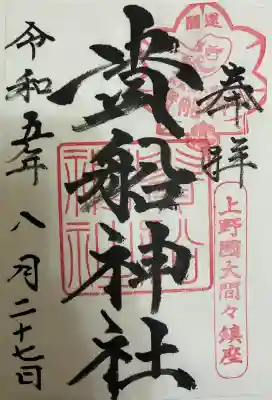 奉拝
開運
上野國大間々鎮座
貴船神社
令和五年八月二十七日